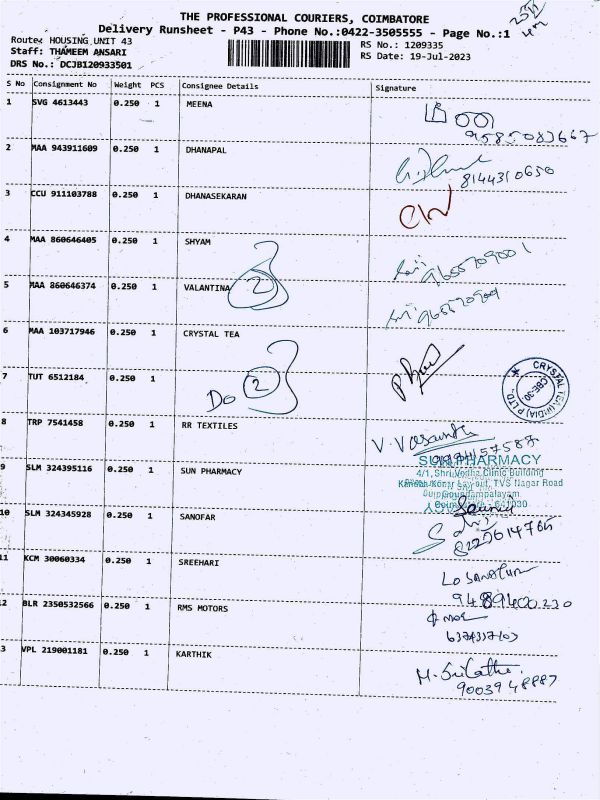 THE PROFESSIONAL COURIERS, COIMBATORE
Delivery Runsheet - P43 - Phone No.:0422-3505555 - Page No.:1
Route: HOUSING UNIT 43
RS No.: 1209335
Staff: THAMEEM ANSARI
RS Date: 19-Jul-2023
DRS No.: DCJB120933501
S No Consignment No Weight PCS Consignee Details Signature
1 SVG 4613443 0.250 1 MEENA
9585083667
2 MAA 943911609 0.250 1 DHANAPAL
8144310650
3 CCU 911103788 0.250 1 DHANASEKARAN
4 MAA 860646405 0.250 1 SHYAM
9655709001
5 MAA 860646374 0.250 1 VALANTINA 2
6 MAA 103717946 0.250 1 CRYSTAL TEA
7 TUT 6512184 0.250 1 Do 2
CRYSTAL TEA (INDIA) P LTD. CBE-30
8 TRP 7541458 0.250 1 RR TEXTILES
V. Vasantha
9 SLM 324395116 0.250 1 SUN PHARMACY
SUN PHARMACY
4/1, Shri Vedha Clinic Building
Layout, TVS Nagar Road
Goundampalayam
641030
10 SLM 324345928 0.250 1 SANOFAR
11 KCM 30060334 0.250 1 SREEHARI
12 BLR 2350532566 0.250 1 RMS MOTORS
6374337103
3 VPL 219001181 0.250 1 KARTHIK
M. Srilatha
9003948887